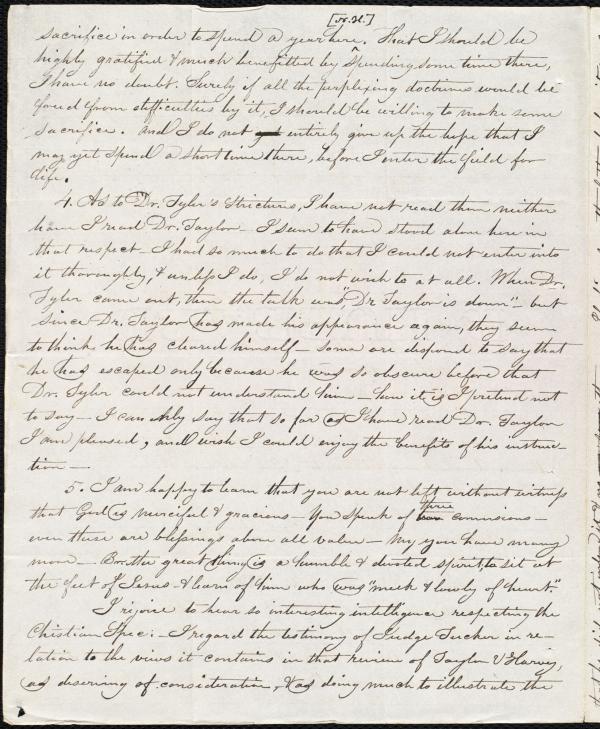 [N.H.]
sacrifice in order to spend a year here. That I should be
highly gratified & much benefitted by spending some time there,
I have no doubt. Surely if all the perplexing doctrines would be
freed from difficulties by it, I should be willing to make some
sacrifice. And I do not entirely give up the hope that I
may yet spend a short time there, before I enter the field for
life.
4. As to Dr. Tyler's Strictures, I have not read them neither
have I read Dr. Taylor — I seem to have stood alone here in
that respect — I had so much to do that I could not enter into
it thoroughly, & unless I do, I do not wish to at all. When Dr.
Tyler came out, then the talk was, "Dr Taylor is down" — but
since Dr. Taylor has made his appearance again, they seem
to think he has cleared himself — some are disposed to say that
he has escaped only because he was so obscure before that
Dr. Tyler could not understand him — how it is I pretend not
to say — I can only say that so far as I have read Dr. Taylor
I am pleased, and wish I could enjoy the benefits of his instruc-
tion —
5. I am happy to learn that you are not left without witness
that God is merciful & gracious — You speak of three conversions —
even these are blessings above all value — May you have many
more — Brother great thing is a humble & devoted spirit, to sit at
the feet of Jesus & learn of him who was "meek & lowly of heart."
I rejoice to hear so interesting intelligence respecting the
Christian Spec. — I regard the testimony of Judge Tucker in re-
lation to the views it contains in that review of Taylor & Harvey,
as deserving of consideration, & as doing much to illustrate the